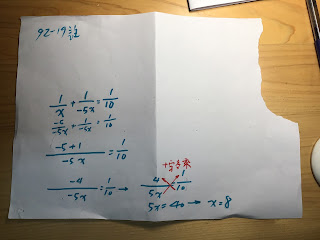 92-19註
1/x + 1/-5x = 1/10
-5/-5x + 1/-5x = 1/10
-5+1/-5x = 1/10
-4/-5x = 1/10 → 4/5x 1/10
5x = 40 → x = 8